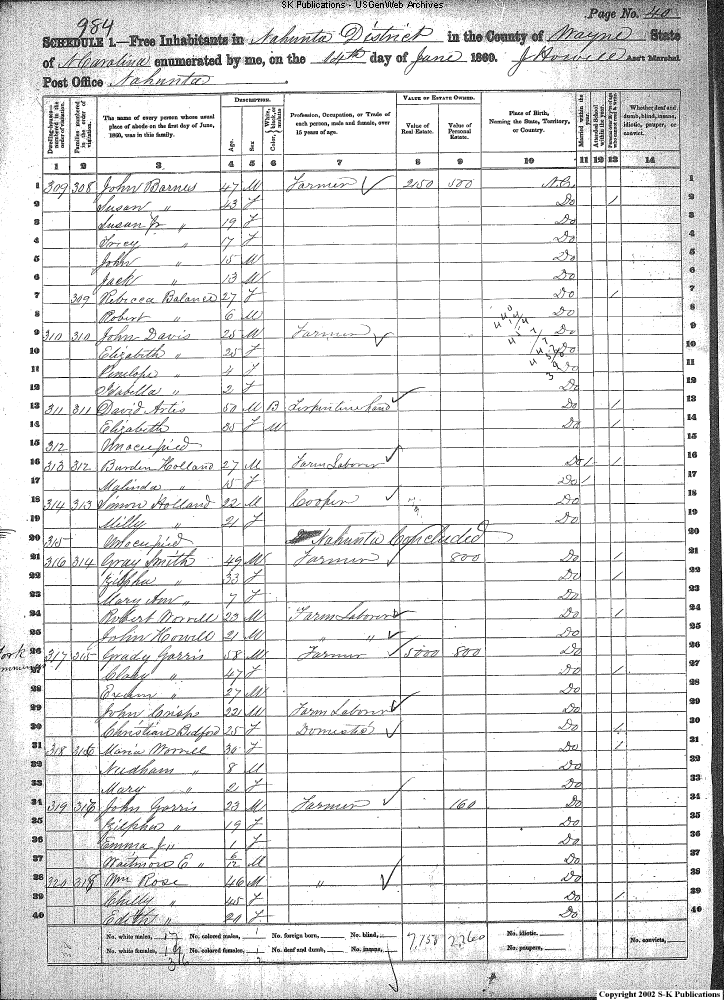 SK Publications - USGenWeb Archives
984
Page No. 40
SCHEDULE 1.—Free Inhabitants in Nahunta District in the County of Wayne State
of N Carolina enumerated by me, on the 14th day of June 1860. J Howell Ass't Marshal.
Post Office Nahunta
DESCRIPTION. VALUE OF ESTATE OWNED.
Dwelling-houses numbered in the order of visitation. Families numbered in the order of visitation. The name of every person whose usual place of abode on the first day of June, 1860, was in this family. Age. Sex. Color, Profession, Occupation, or Trade of each person, male and female, over 15 years of age. Value of Real Estate. Value of Personal Estate. Place of Birth, Naming the State, Territory, or Country. Married within the year. Attended School within the year. Whether deaf and dumb, blind, insane, idiotic, pauper, or convict.
1 2 3 4 5 6 7 8 9 10 11 12 13 14
1 309 308 John Barnes 47 M Farmer ✓ 2150 500 N.C. 1
2 Susan " 43 F Do / 2
3 Susan Jr " 19 F Do 3
4 " 17 F Do 4
5 John " 15 M Do 5
6 Jack " 13 M Do 6
7 309 Rebecca Balance 27 F Do / 7
8 Robert " 6 M Do 8
9 310 310 John Davis 25 M Farmer ✓ Do 9
10 Elizabeth " 25 F Do 10
11 Penelope " 4 F Do 11
12 Isabella " 2 F Do 12
13 311 311 David Artis 50 M B Turpentine hand ✓ Do / 13
14 Elizabeth " 35 F M Do / 14
15 312 Unoccupied 15
16 313 312 Burden Holland 27 M Farm Laborer ✓ Do / / 16
17 Malinda " 15 F Do / 17
18 314 313 Simon Holland 22 M Cooper ✓ Do 18
19 Milly " 21 F Do 19
20 315 Unoccupied Nahunta Concluded 20
21 316 314 Gray Smith 49 M Farmer ✓ 800 Do / 21
22 Zilpha " 33 F Do / 22
23 Mary Ann " 7 F Do 23
24 Robert Worrell 23 M Farm Laborer ✓ Do / 24
25 John Howell 21 M " " ✓ Do 25
26 317 315 Grady Garris 58 M Farmer ✓ 5000 800 Do 26
27 " 47 F Do / 27
28 Exum " 27 M Do 28
29 John Crisp 22 M Farm Laborer ✓ Do 29
30 Christian Bedford 25 F Domestic ✓ Do / 30
31 318 316 Maria Worrell 30 F Do / 31
32 Needham " 8 M Do 32
33 Mary " 21 F Do 33
34 319 John Garris 23 M Farmer ✓ 160 Do 34
35 Zilpha " 19 F Do 35
36 Emma J " 1 F Do 36
37 Waitmore E " 6/12 M Do 37
38 320 318 Wm Rose 46 M " ✓ Do 38
39 " 45 F Do / 39
40 Edith " 20 F Do 40
No. white males, 17 No. colored males, 1 No. foreign born, No. blind, 7,150 2,260 No. idiotic. No. convicts,
No. white females, 19 No. colored females, 1 No. deaf and dumb, No. insane, No. paupers,
36 2
Copyright 2002 S-K Publications